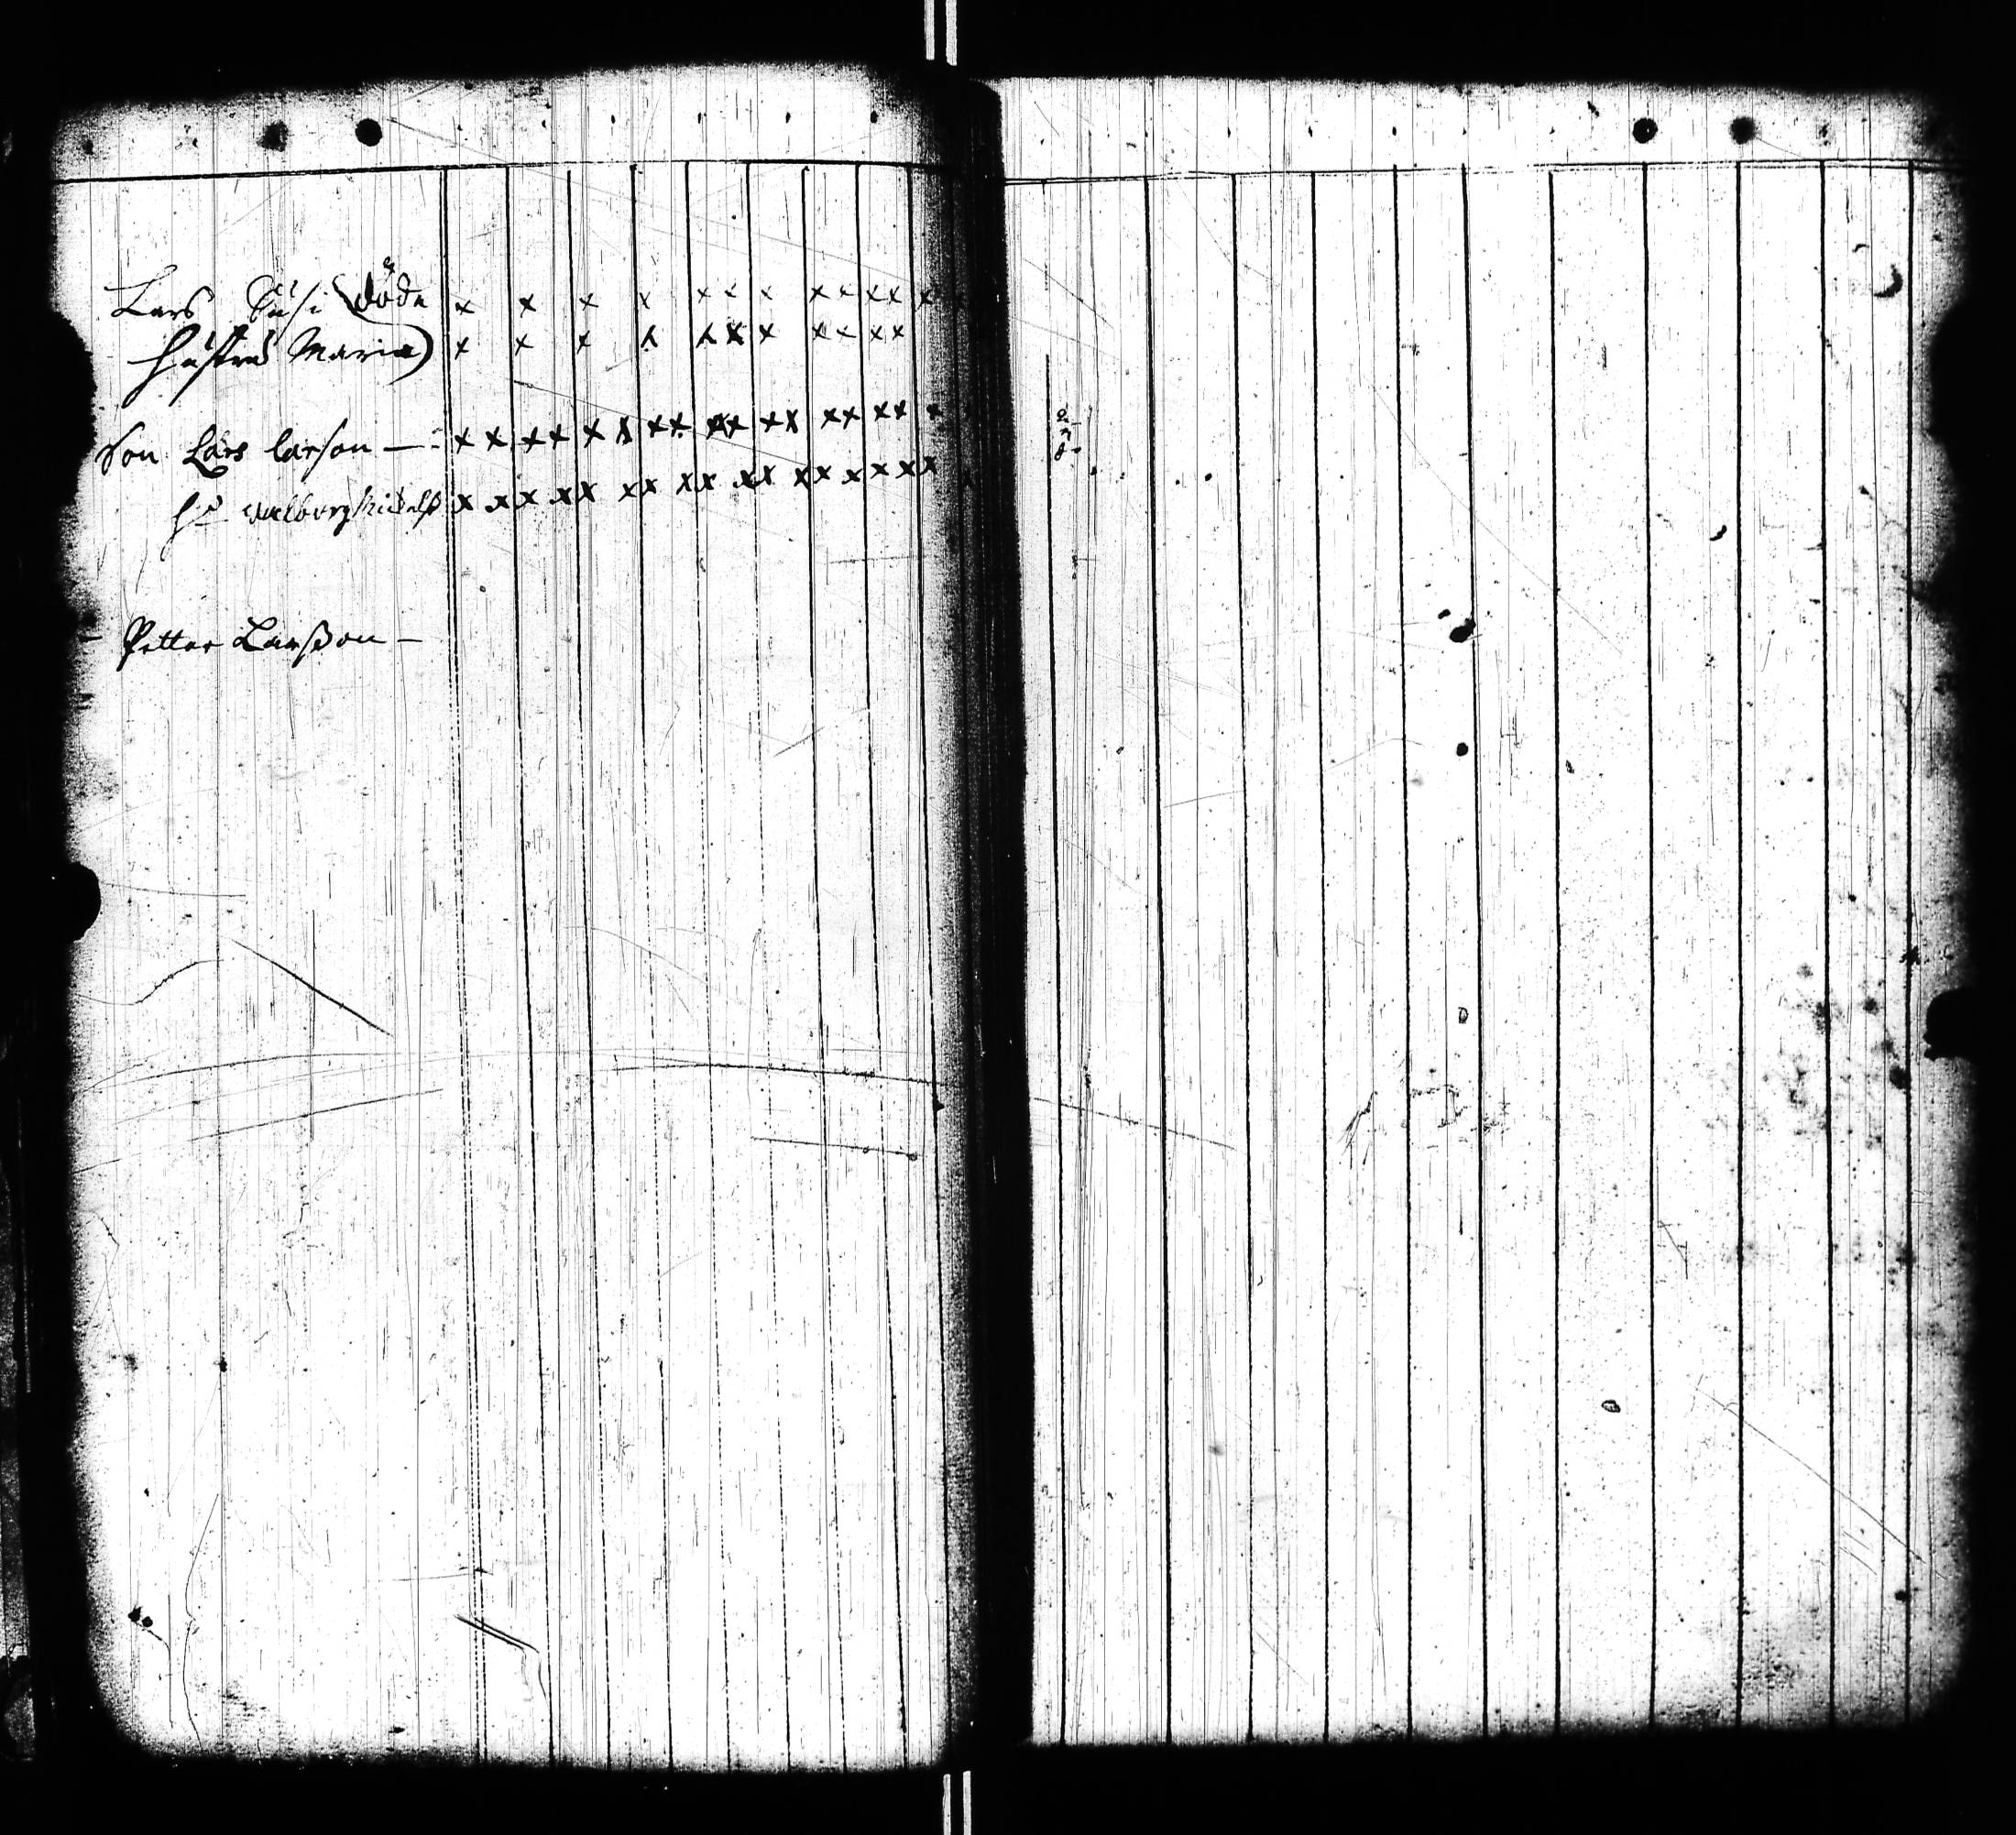 Lars Susi (döde x x x x x x x x x x x x
hustru Maria) x x x x x x x x x x x
Son Lars larson — x x x x x x x x x x x x x x x x x
hu Walborg x x x x x x x x x x x x x x x x x x
- Petter Larßon -